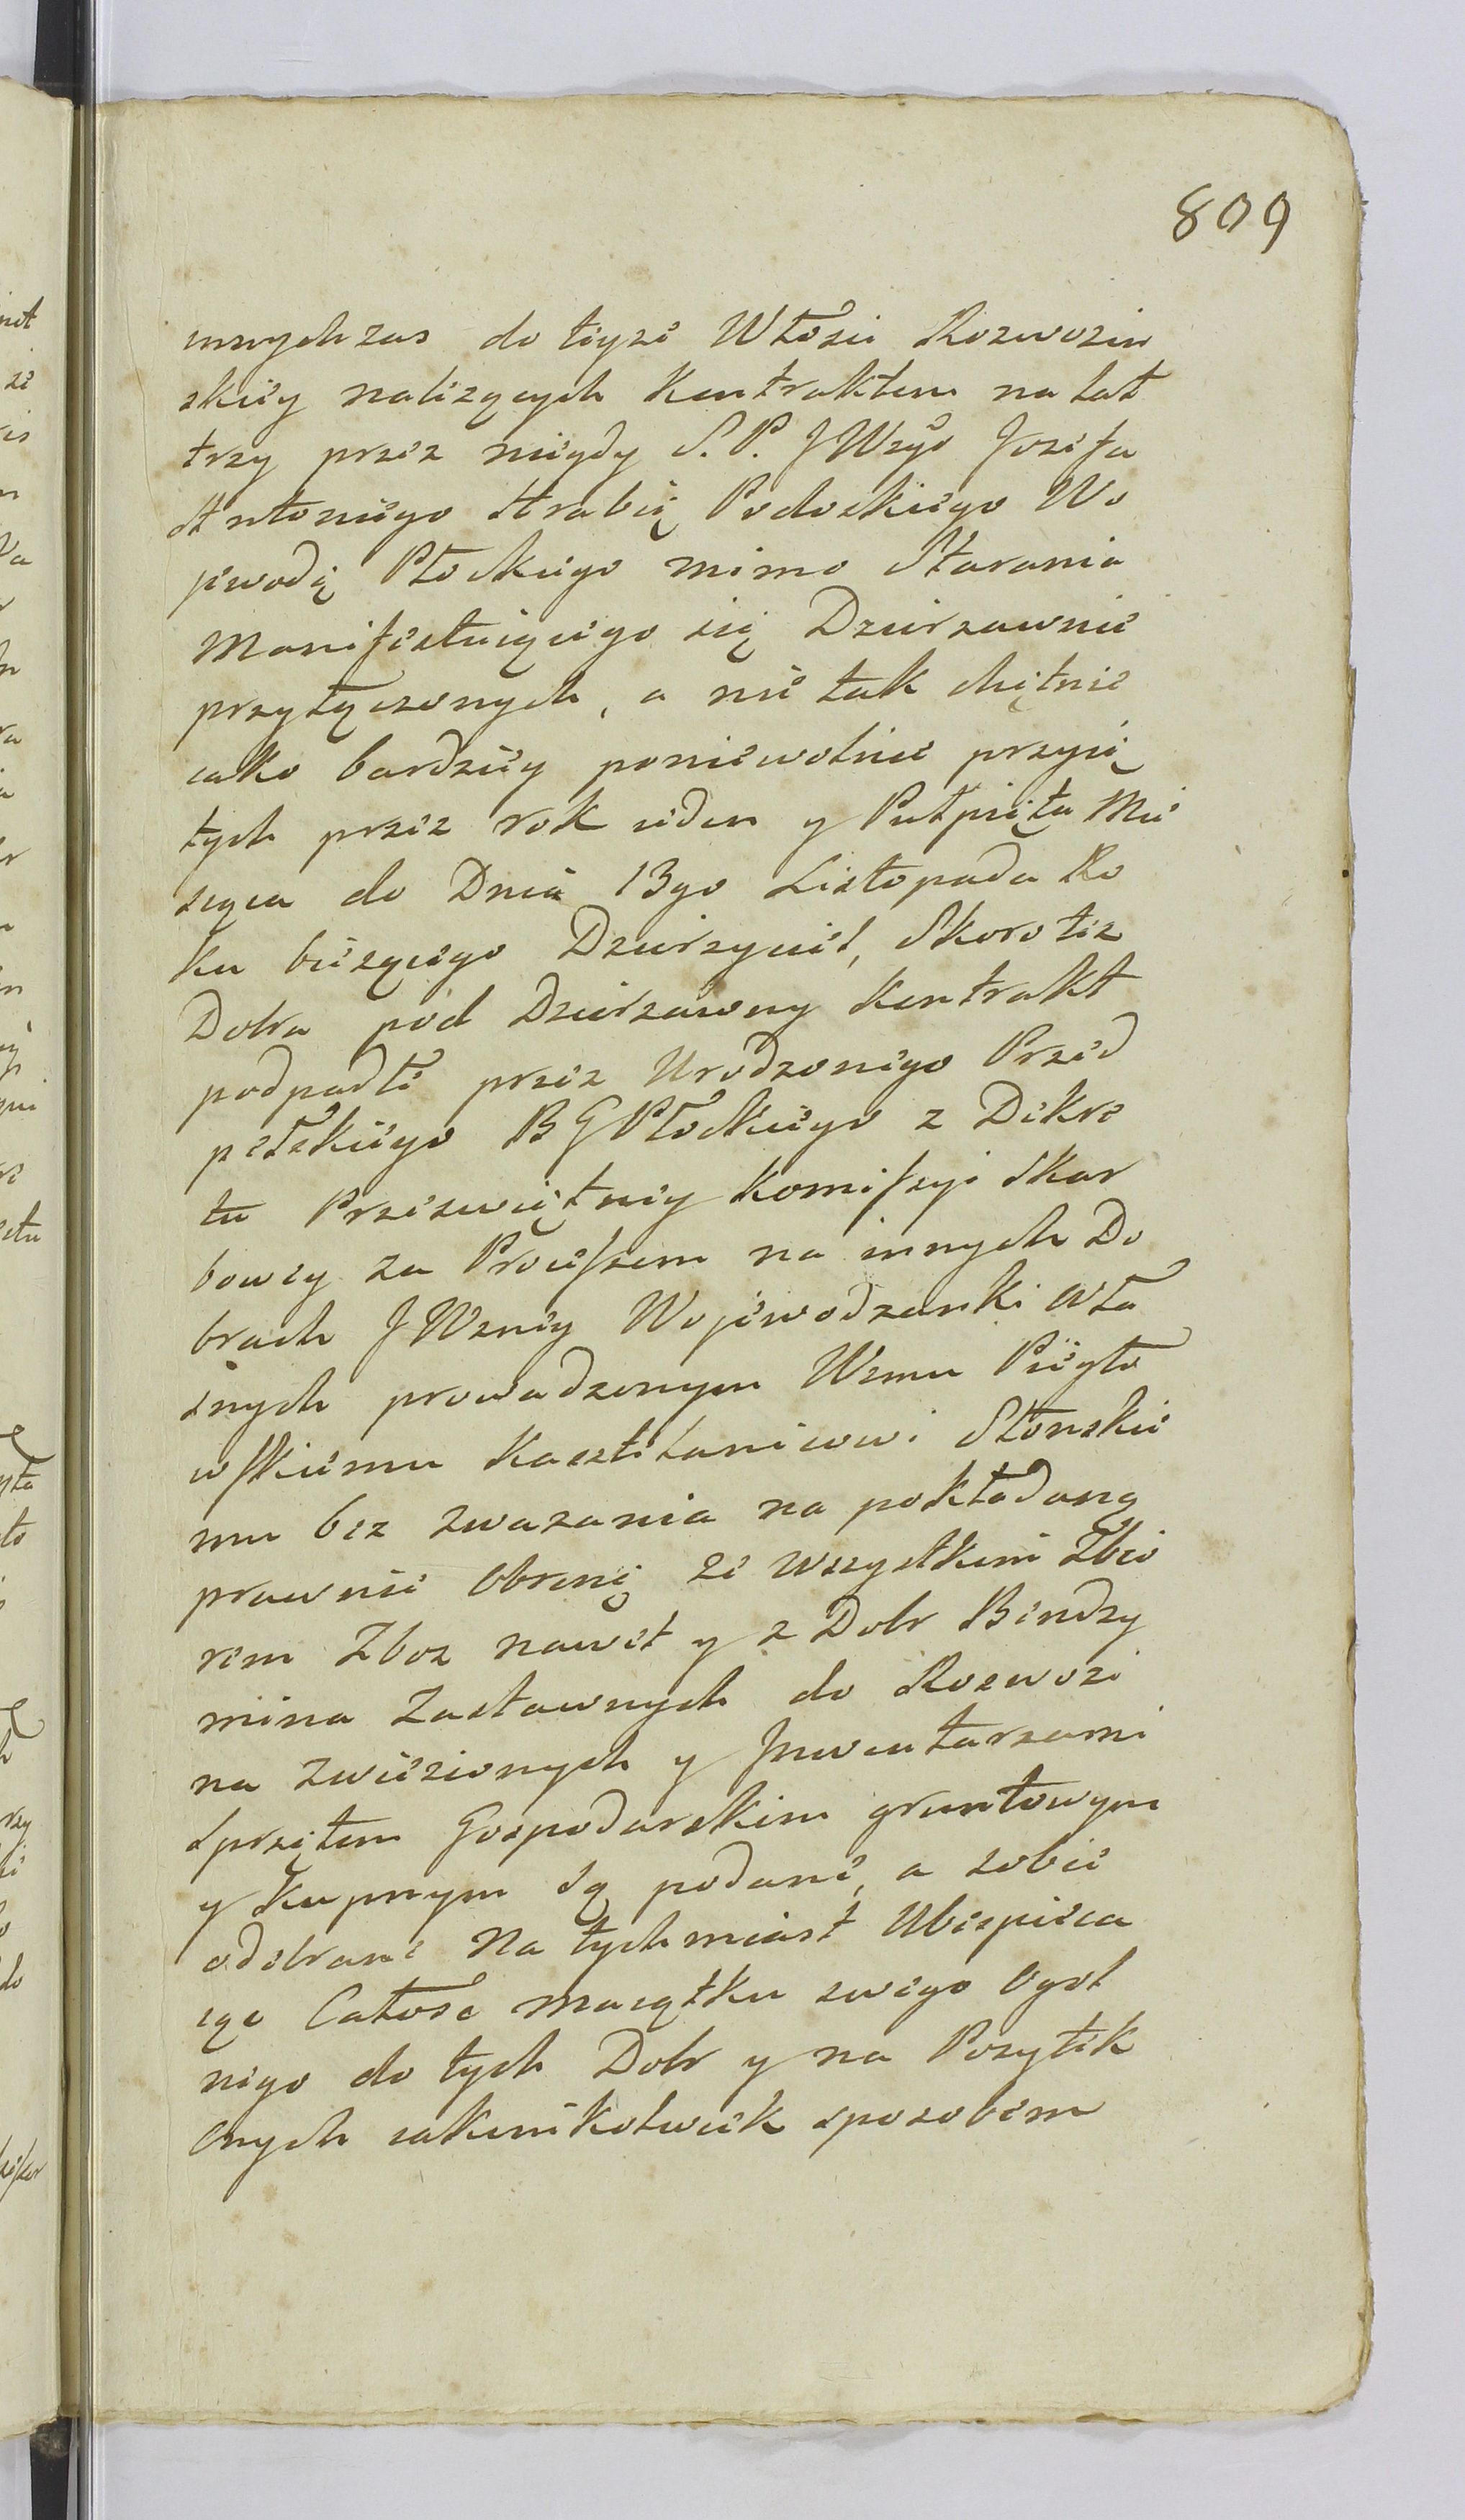 809
wnychzas do teyze Włosci Rozwozin
skiey nalezących Kontraktem na lat
trzy przez niegdy S.P. JWgo Jozefa
Antoniego Hrabię Podoskiego Wo
jewodę Płockiego mimo Starania
Manifestuiącego się Dzierzawnie
przyłączonych, a nie tak chętnie
iako bardziey poniewolnie przyię
tych przez rok ieden y Putpięta Mie
siąca do Dnia 13go Listopada Ro
ku bieżącego Dzierzącie, Skoro też
Dobra pod Dzierzawny Kontrakt
podpadłe przez Urodzonego Przed
pełskiego BGPłockiego z Dekre
tu Prześwietney Komissyi Skar
bowey za Processem na innych Do
brach JWzney Wojewodzanki wła
snych prowadzonym Wzmu Piegło
wskiemu Kasztelanicowi Słonskie
mu bez zwazania na pokładaną
prawnie Obronę ze wszystkim Zbio
rem Zboz nawet y z Dobr Bendzy
mina Zastawnych do Rozwozi
na zwiezionych y Jnwentarzami
sprzętem Gospodarskim gruntowym
y kupnym są podane, a sobie
odebrane Natychmiast Ubespieca
iąc Całosc maiątku swego Ogol
nego do tych Dobr y na Pozytek
Onych iakimkolwiek sposobem